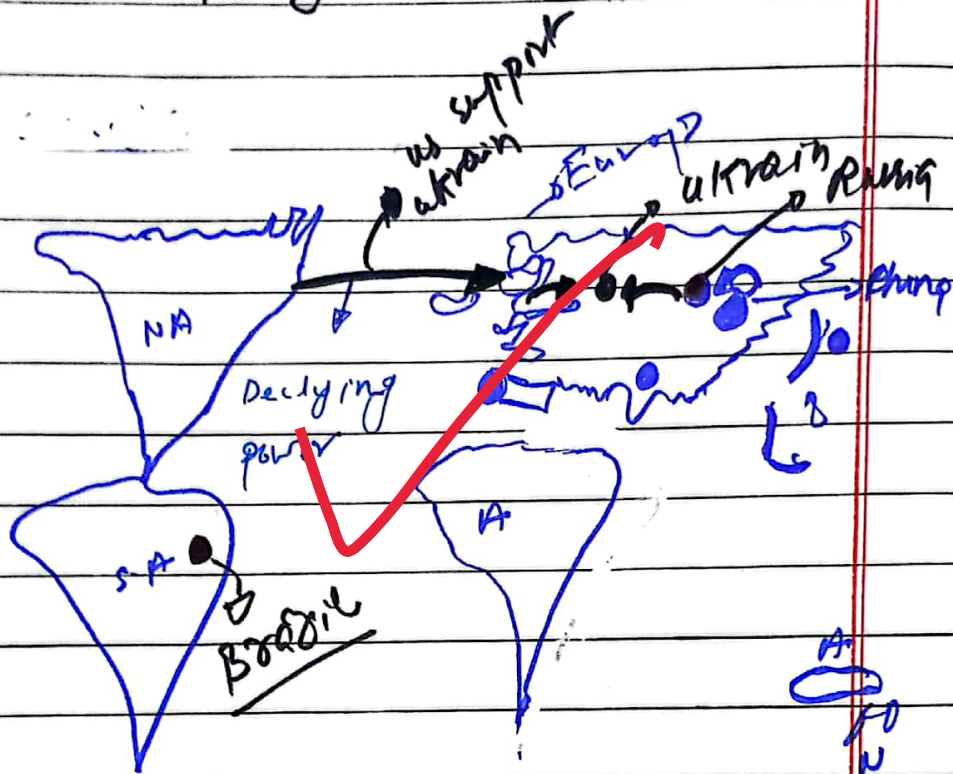 us support
ukrain
Europ
ukrain
Russia
China
NA
Declying
power
A.
S-A
Brazil
A.